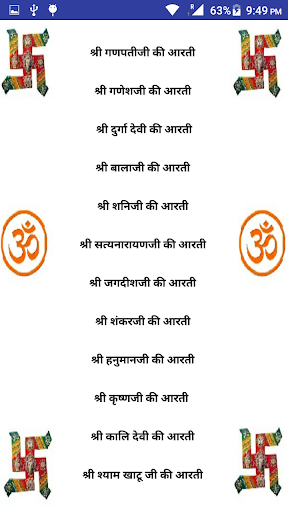 63% 9:49 PM
श्री गणपतीजी की आरती
श्री गणेशजी की आरती
श्री दुर्गा देवी की आरती
श्री बालाजी की आरती
श्री शनिजी की आरती
श्री सत्यनारायणजी की आरती
श्री जगदीशजी की आरती
श्री शंकरजी की आरती
श्री हनुमानजी की आरती
श्री कृष्णजी की आरती
श्री कालि देवी की आरती
श्री श्याम खाटू जी की आरती
ॐ
ॐ